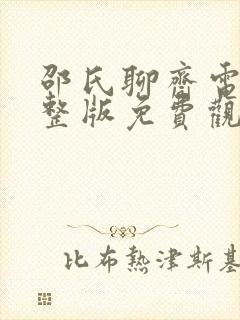 邵氏聊齋電
整版免費觀
比布熱津斯基